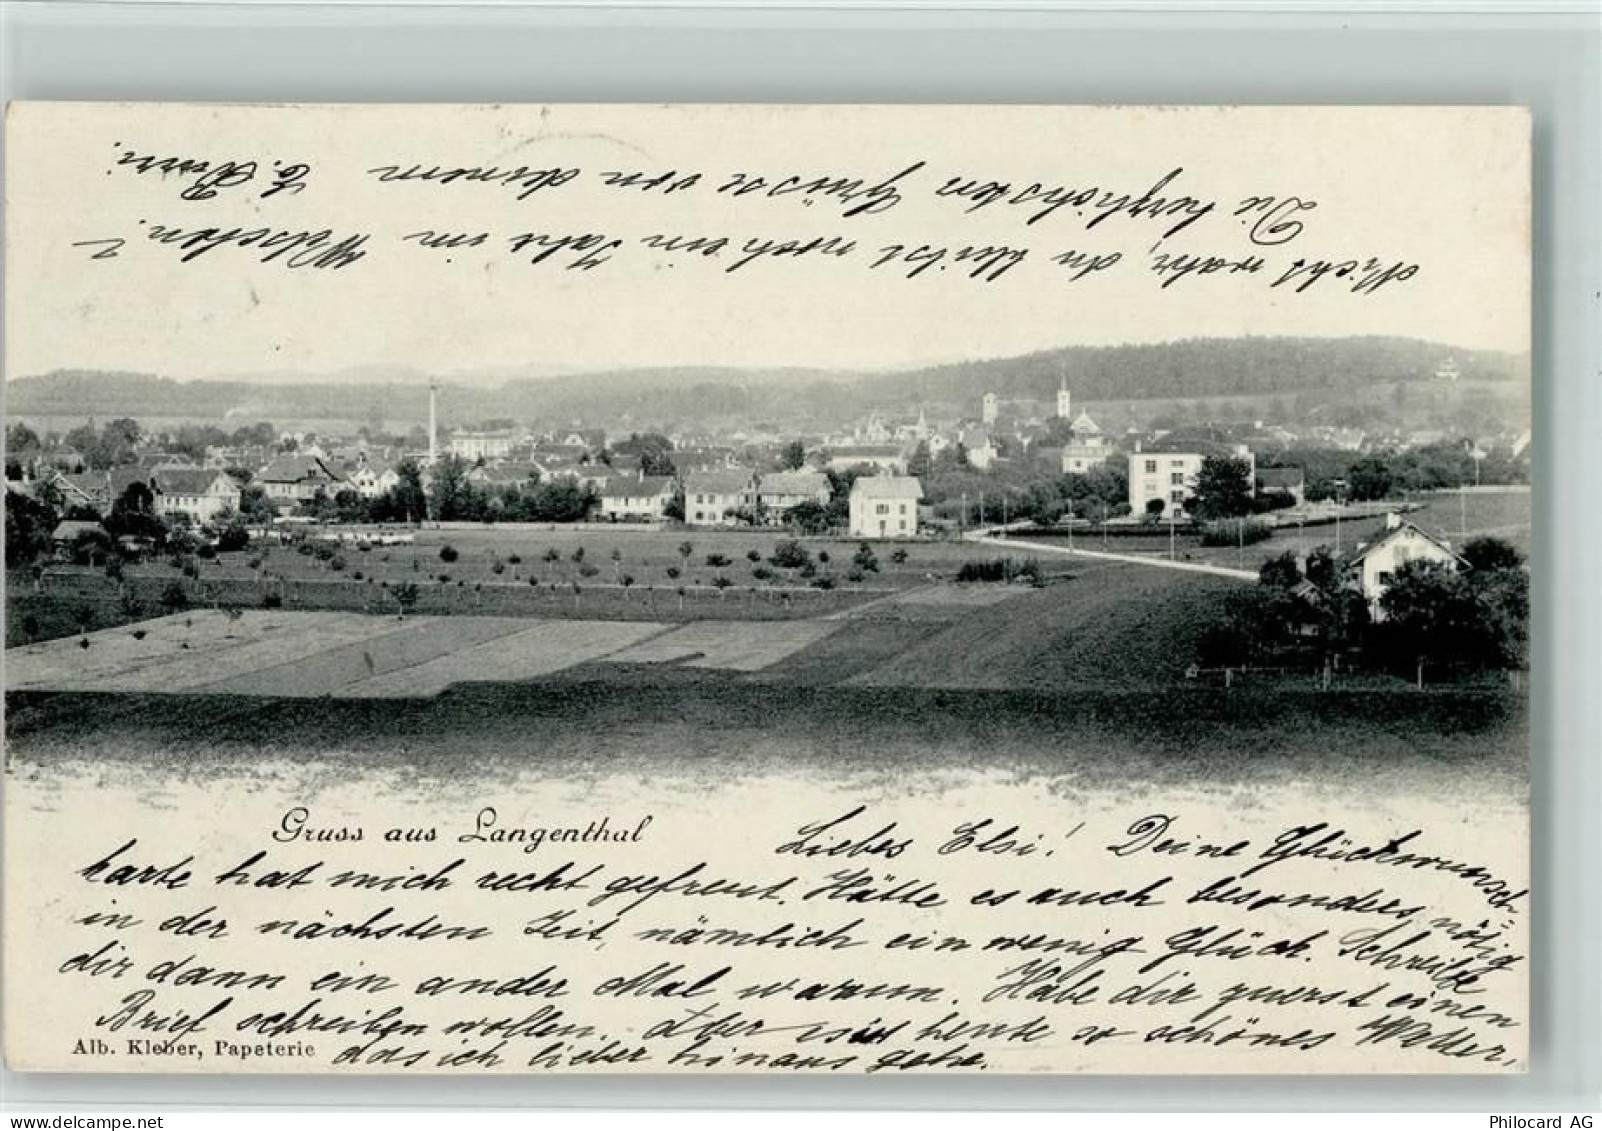 Gruss aus Langenthal
Liebes Elsi! Deine Glückwunsch-
karte hat mich recht gefreut. Hätte es auch besonders nötig
in der nächsten Zeit, nämlich ein wenig Glück. Schreibe
dir dann ein ander Mal warum. Habe dir zuerst einen
Brief schreiben wollen. Aber ist heute so schönes Wetter,
das ich lieber hinaus gehe.
Nicht wahr, du bleibst noch ein Jahr im Welschen?
Die herzlichsten Grüsse von deinem E.
Alb. Kleber, Papeterie
www.delcampe.net
Philocard AG